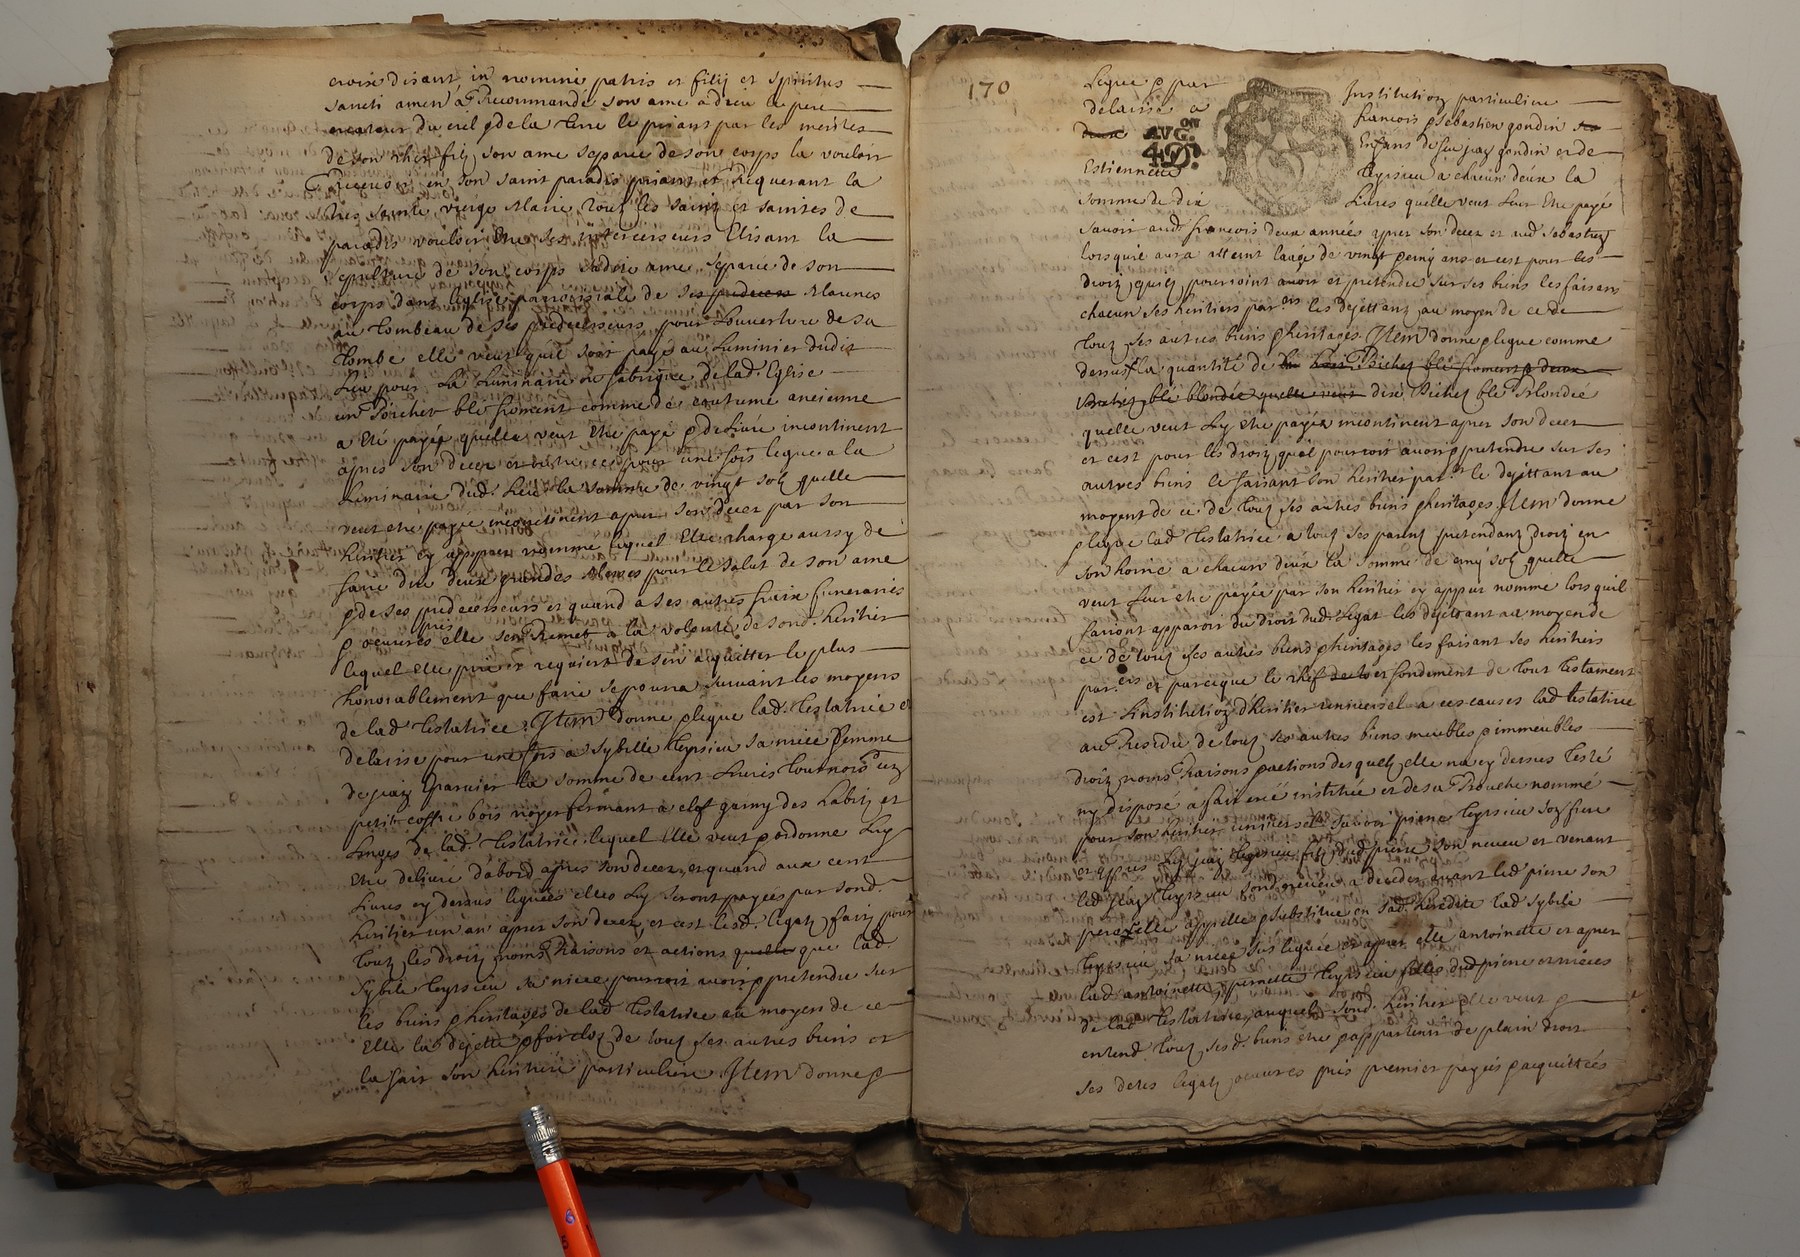 croix disant in nomine patris et filij et spiritus
sancti amen a Recommandé son ame a dieu le pere
createur du ciel & de la terre le priant par les merites
de son cher filz son ame separée de son corps la vouloir
Recevoir en son saint paradis priant et Requerant la
tres sainte vierge Marie touts les saints et saintes de
paradis vouloir etre ses intercesseurs Elisant la
sepulture de son corps sadite ame separée de son
corps dans leglise parroissiale de ses predecess Marines
au tombeau de ses predecesseurs pour louverture de sa
tombe elle veut quil soit payé au luminier dudit
lieu pour la luminaire ou fabrique de lad. Eglise
un blé froment comme de coutume ancienne
a eté payée quelle veut etre payé & delivré incontinent
apres son decez et pour une fois legue a la
luminaire dud. lieu la somme de vingt solz quelle
veut etre payée incontinent apres son decez par son
heritier cy appres nommé lequel Elle charge aussy de
faire dire deux grandes Messes pour le salut de son ame
& de ses predecesseurs et quand a ses autres fraix funeraires
& oeuvres pies elle sen Remet a la volonté de sond. heritier
lequel elle prie et requiert de sen acquitter le plus
honorablement que faire se pourra suivant les moyens
de lad. testatrice. Item donne & legue lad. testatrice et
delaisse pour une fois a Sybille teyssieu sa niece femme
de jean Garnier la somme de cent livres tournois un
petit coffre bois noyer fermant a clef garny des habitz et
linges de lad. testatrice lequel elle veut & ordonne luy
etre delivré dabord apres son decez, et quand aux cent
livres cy dessus leguées elles luy seront payées par sond.
heritier un an apres son decez et cest lesd. legatz faitz pour
touts les droitz noms Raisons et actions quelle que lad.
Sybile teyssieu sa niece pourroit avoir & pretendre sur
les biens & heritages de lad. testatrice au moyen de ce
Elle la dejette & forclos de touts ses autres biens et
la fait son heritiere particuliere Item donne &
170
Legue & par Institution particuliere
delaisse a françois & sebastien gondin
AVG.ON
Enfans de feu jean gondin et de
Estiennette teyssieu a chacun deux la
somme de dix livres quelle veut leur etre payé
savoir aud. françois deux années apres son decez et aud. sebastien
lorsquil aura atteint laage de vingt & cinq ans et cest pour les
droitz quils pourroint avoir et pretendre sur ses biens les faisant
chacun ses heritiers par.ers les dejettans au moyen de ce de
touts ses autres biens & heritages. Item donne & legue comme
dessus la quantité de Bichetz blé froment & deux
Bichetz blé blondée quelle veut dix Bichetz blé Blondée
quelle veut luy etre payée incontinent apres son decez
et cest pour les droitz quil pourroit avoir & pretendre sur ses
autres biens le faisant son heritier par.er le dejettant au
moyent de ce de touts ses autres biens & heritages Item donne
& legue lad. testatrice a touts ses parens pretendans droitz en
son hoirie a chacun deux la somme de cinq solz quelle
veut leur etre payée par son heritier cy appres nommé lors quil
fairont apparoir du droit dud. legat les dejettant au moyen de
ce de touts ses autres biens & heritages les faisant ses heritiers
par.ers et parceque le chef et fondement de tout testament
est linstitution d'heritier universel a ces causes lad. testatrice
au Residu de touts ses autres biens meubles & immeubles
droitz noms Raisons & actions desquels elle na cy dessus testé
ny disposé a fait crée institué et de sa Bouche nommé
pour son heritier universel savoir pierre teyssieu son frere
et appres luy jean teyssieu filz dud. pierre son neveu et venant
led. jean teyssieu sond. neveu a deceder avant led. pierre son
pere elle appelle & substitue en sad. heredité lad. sybile
teyssieu sa niece sus leguée et apres elle antoinette et apres
lad. antoinette, pernette teyssieu filles dud. pierre et nieces
de lad. testatrice, auquel sond. heritier elle veut &
entend touts sesd. biens etre & appartenir de plain droit
ses detes legatz oeuvres pies premier payés & acquittées